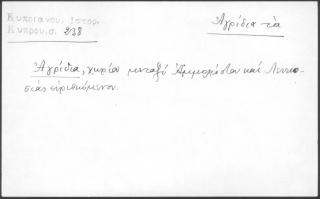 Κυπριανού. Ιστορ.
Κυπρου.σ. 238
Ἀγρίδια τὰ
Ἀγρίδια, χωρίον μεταξὺ Ἀμμοχώστου καὶ Λευκω-
σίας εὑρισκόμενον.